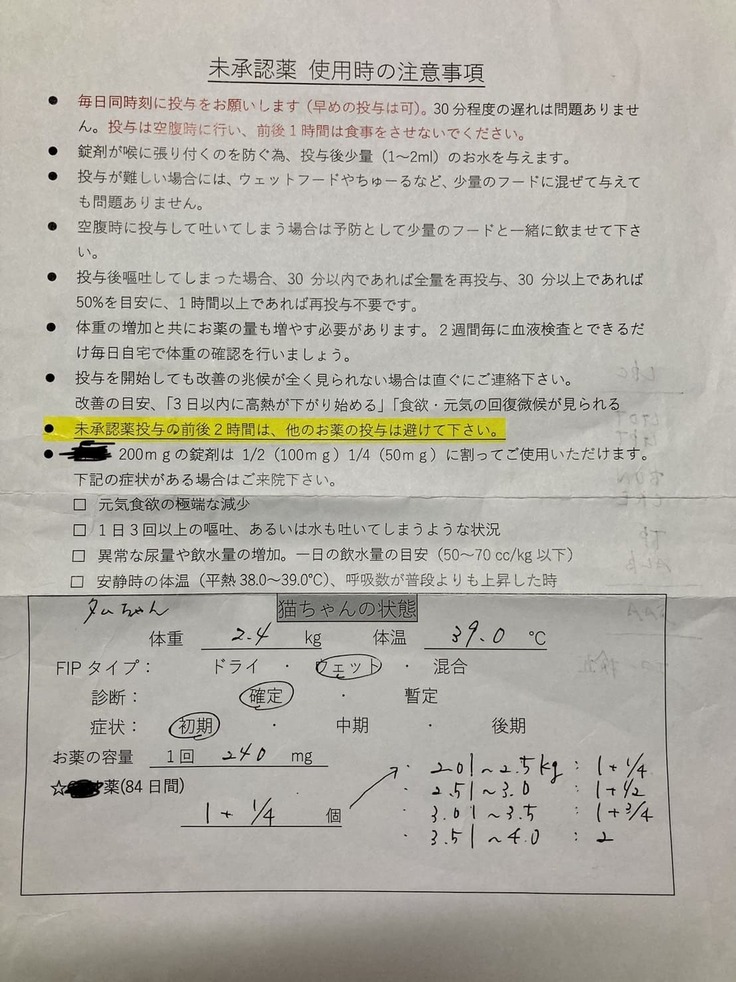 未承認薬 使用時の注意事項
● 毎日同時刻に投与をお願いします（早めの投与は可）。30分程度の遅れは問題ありませ
ん。投与は空腹時に行い、前後1時間は食事をさせないでください。
● 錠剤が喉に張り付くのを防ぐ為、投与後少量（1～2ml）のお水を与えます。
● 投与が難しい場合には、ウェットフードやちゅーるなど、少量のフードに混ぜて与えて
も問題ありません。
● 空腹時に投与して吐いてしまう場合は予防として少量のフードと一緒に飲ませて下さ
い。
● 投与後嘔吐してしまった場合、30 分以内であれば全量を再投与、30 分以上であれば
50%を目安に、1時間以上であれば再投与不要です。
● 体重の増加と共にお薬の量も増やす必要があります。2週間毎に血液検査とできるだ
け毎日自宅で体重の確認を行いましょう。
● 投与を開始しても改善の兆候が全く見られない場合は直ぐにご連絡下さい。
改善の目安、「3日以内に高熱が下がり始める」「食欲・元気の回復微候が見られる
● 未承認薬投与の前後2時間は、他のお薬の投与は避けて下さい。
● 200ｍｇの錠剤は 1/2（100ｍｇ）1/4（50ｍｇ）に割ってご使用いただけます。
下記の症状がある場合はご来院下さい。
□ 元気食欲の極端な減少
□ 1日3回以上の嘔吐、あるいは水も吐いてしまうような状況
□ 異常な尿量や飲水量の増加。一日の飲水量の目安（50～70 cc/kg 以下）
□ 安静時の体温（平熱 38.0～39.0℃）、呼吸数が普段よりも上昇した時
ちゃん 猫ちゃんの状態
体重 2.4 kg 体温 39.0 ℃
FIP タイプ： ドライ ・ ウェット ・ 混合
診断： 確定 ・ 暫定
症状： 初期 ・ 中期 ・ 後期
お薬の容量 1回 240 mg
☆薬(84日間)
1+ 1/4 個
・ 2.01～2.5kg : 1+1/4
・ 2.51～3.0 : 1+1/2
・ 3.01～3.5 : 1+3/4
・ 3.51～4.0 : 2